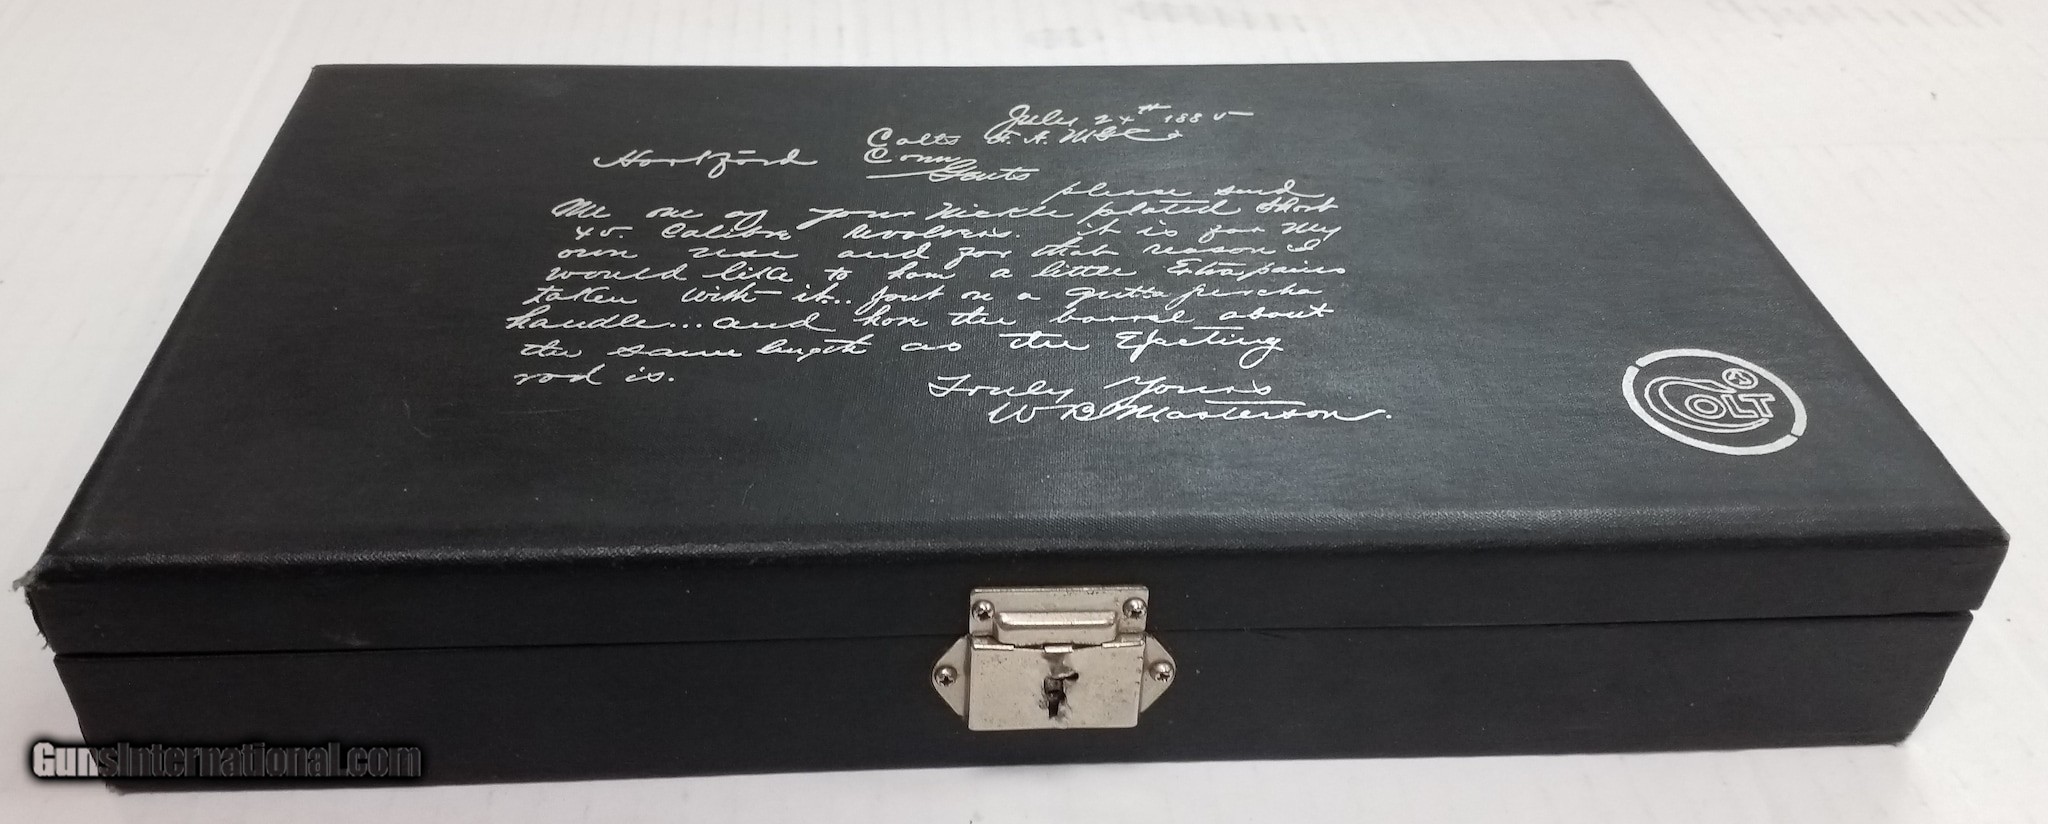 July 24th 1885
Colts F. A. MGC
Hartford Conn
Gents
please send
Me one of your Nickle plated short
45. Calibre Revolvers. it is for My
own use and for that reason I
would like to have a little Extra pains
taken with it.. put on a gutta percha
handle... and have the barrel about
the same length as the Ejecting
rod is.
Truly Yours
W B Masterson.
COLT
GunsInternational.com